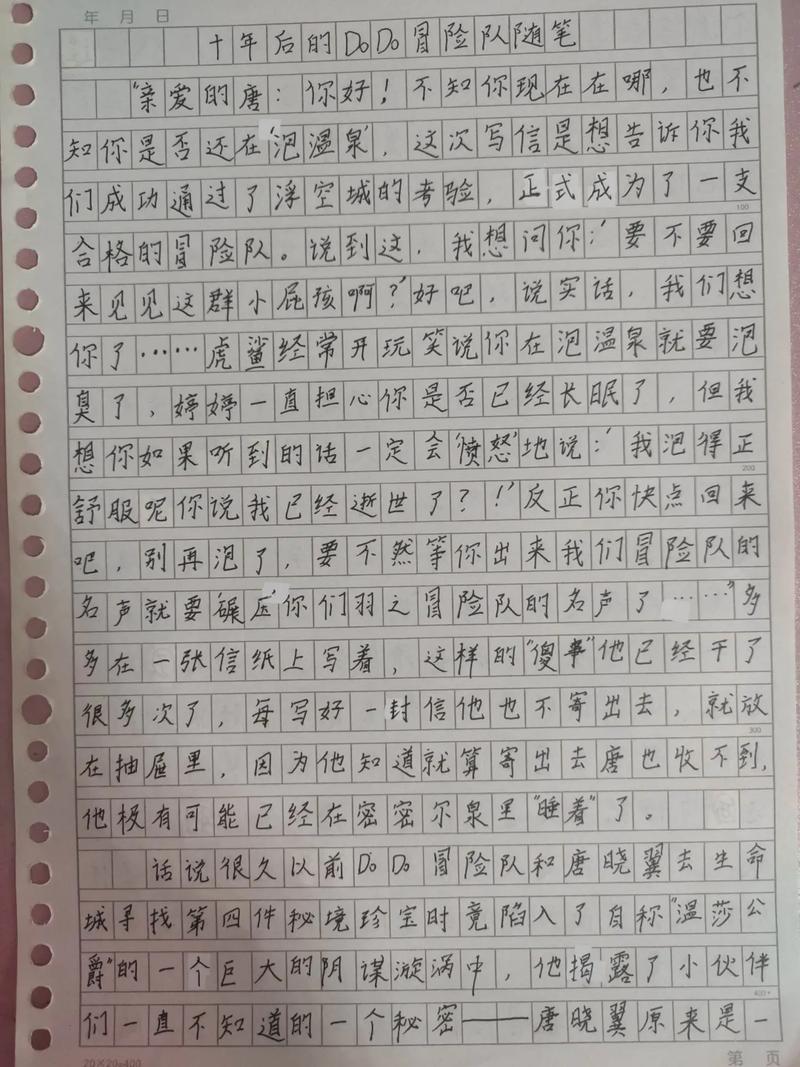 年 月 日
十年后的DoDo冒险队随笔
"亲爱的唐：你好！不知你现在在哪，也不
知你是否还在'泡温泉'，这次写信是想告诉你我
们成功通过了浮空城的考验，正式成为了一支
100
合格的冒险队。说到这，我想问你：'要不要回
来见见这群小屁孩啊？'好吧，说实话，我们想
你了……虎鲨经常开玩笑说你在泡温泉就要泡
臭了，婷婷一直担心你是否已经长眠了，但我
想你如果听到的话一定会'愤怒'地说：'我泡得正
200
舒服呢你说我已经逝世了？！'反正你快点回来
吧，别再泡了，要不然等你出来我们冒险队的
名声就要'碾压'你们羽之冒险队的名声了……"多
多在一张信纸上写着，这样的"傻事"他已经干了
很多次了，每写好一封信他也不寄出去，就放
300
在抽屉里，因为他知道就算寄出去唐也收不到，
他极有可能已经在密密尔泉里"睡着"了。
话说很久以前DoDo冒险队和唐晓翼去生命
城寻找第四件秘境珍宝时竟陷入了自称"温莎公
爵"的一个巨大的阴谋漩涡中，他揭露了小伙伴
400+
们一直不知道的一个秘密——唐晓翼原来是一
20×20=400
第 页